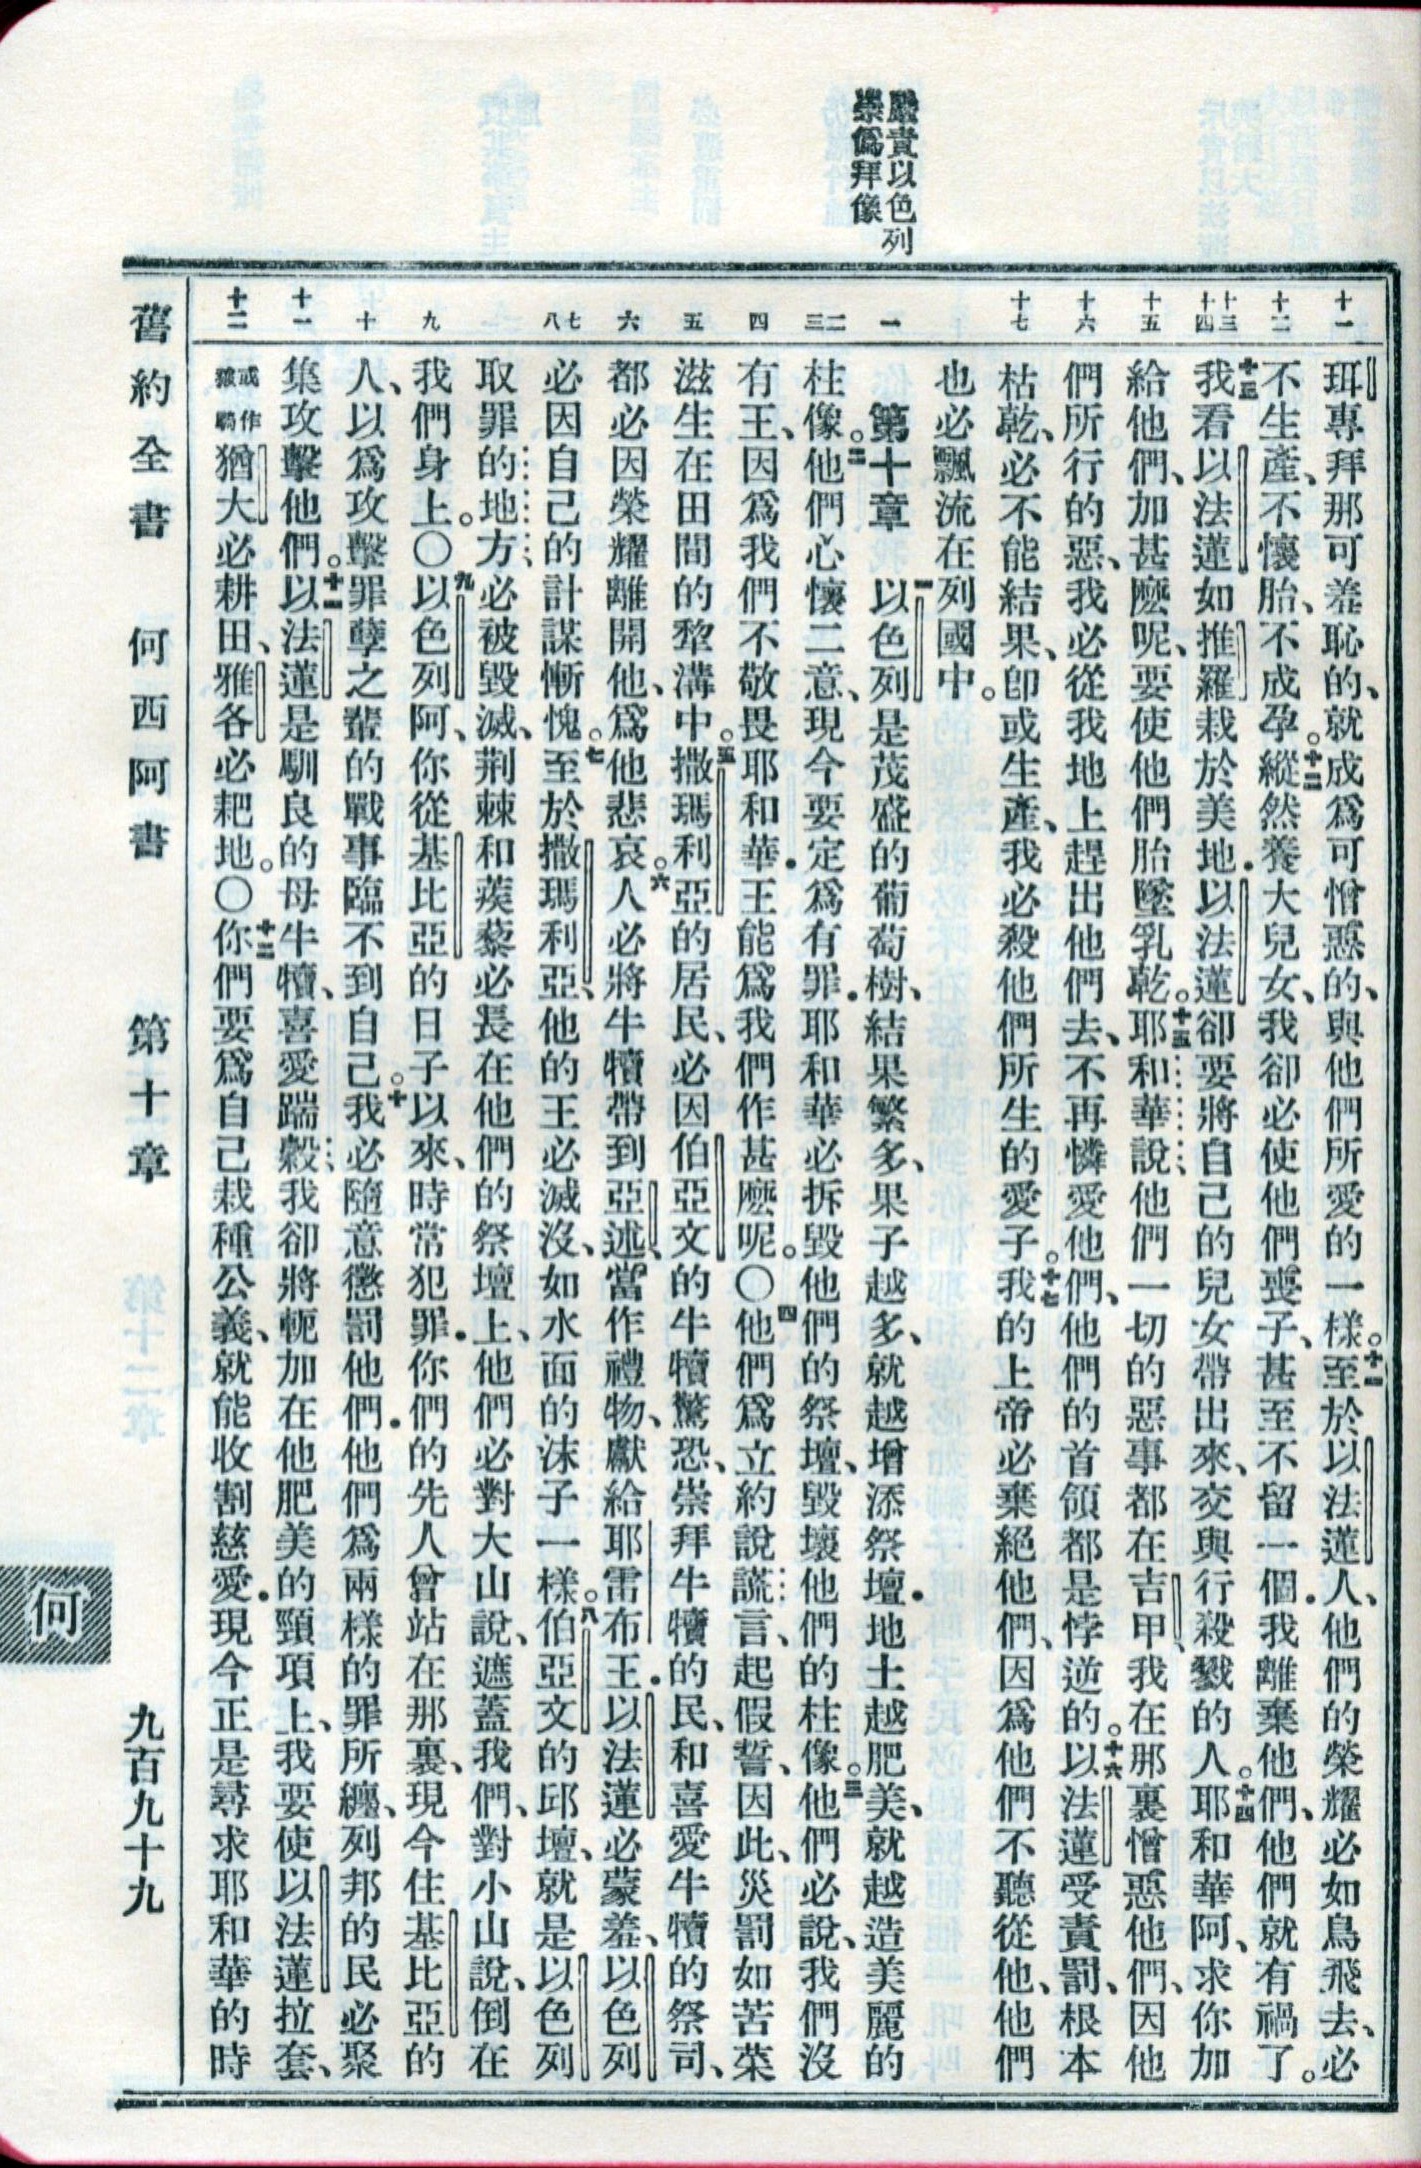 嚴責以色列
崇偽拜像
十一
十二
十三
十四
十五
十六
十七
一
二
三
四
五
六
七
八
九
十
十一
十二
珥專拜那可羞恥的、就成爲可憎惡的、與他們所愛的一樣。十一至於以法蓮人、他們的榮耀必如鳥飛去、必
不生產、不懷胎、不成孕。十二縱然養大兒女、我卻必使他們喪子、甚至不留一個．我離棄他們、他們就有禍了。
十三我看以法蓮如推羅栽於美地．以法蓮卻要將自己的兒女帶出來、交與行殺戮的人。十四耶和華阿、求你加
給他們、加甚麼呢、要使他們胎墜乳乾。十五耶和華說、他們一切的惡事都在吉甲、我在那裏憎惡他們、因他
們所行的惡、我必從我地上趕出他們去、不再憐愛他們、他們的首領都是悖逆的。十六以法蓮受責罰、根本
枯乾、必不能結果、卽或生產、我必殺他們所生的愛子。十七我的上帝必棄絕他們、因爲他們不聽從他、他們
也必飄流在列國中。
第十章　一以色列是茂盛的葡萄樹、結果繁多、果子越多、就越增添祭壇．地土越肥美、就越造美麗的
柱像。二他們心懷二意、現今要定爲有罪．耶和華必拆毀他們的祭壇、毀壞他們的柱像。三他們必說、我們沒
有王、因爲我們不敬畏耶和華．王能爲我們作甚麼呢。〇四他們爲立約說謊言、起假誓、因此、災罰如苦菜
滋生在田間的犂溝中。五撒瑪利亞的居民、必因伯亞文的牛犢驚恐、崇拜牛犢的民、和喜愛牛犢的祭司、
都必因榮耀離開他、爲他悲哀。六人必將牛犢帶到亞述、當作禮物、獻給耶雷布王．以法蓮必蒙羞、以色列
必因自己的計謀慚愧。七至於撒瑪利亞、他的王必滅沒、如水面的沫子一樣。八伯亞文的邱壇、就是以色列
取罪的地方、必被毀滅、荆棘和蒺藜必長在他們的祭壇上、他們必對大山說、遮蓋我們、對小山說、倒在
我們身上。〇九以色列阿、你從基比亞的日子以來、時常犯罪．你們的先人曾站在那裏、現今住基比亞的
人、以爲攻擊罪孽之輩的戰事臨不到自己。十我必隨意懲罰他們．他們爲兩樣的罪所纏、列邦的民必聚
集攻擊他們。十一以法蓮是馴良的母牛犢、喜愛踹穀、我卻將軛加在他肥美的頸項上、我要使以法蓮拉套、
或作被騎猶大必耕田、雅各必耙地。〇十二你們要爲自己栽種公義、就能收割慈愛．現今正是尋求耶和華的時
舊約全書　何西阿書　第十章　九百九十九
何